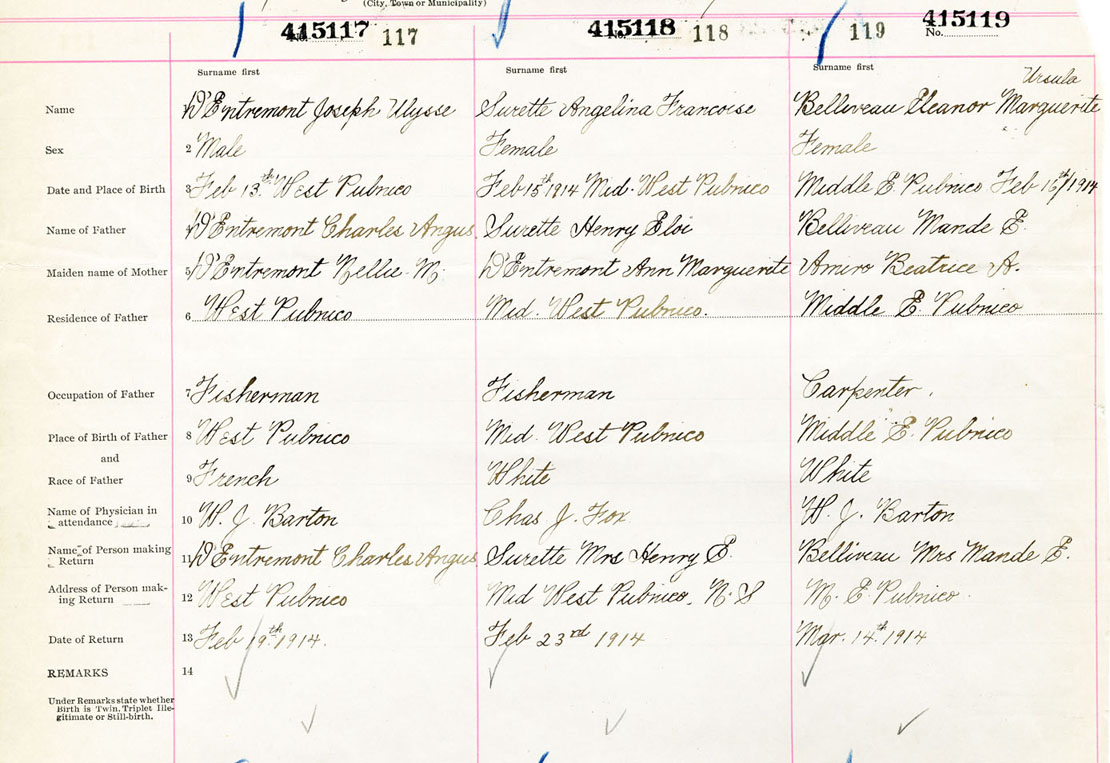 (City, Town or Municipality)
415117 117 415118 118 119 415119
No. No. No.
Surname first Surname first Surname first
Ursula
Name D'Entremont Joseph Ulysse Surette Angelina Francoise Belliveau Eleanor Marguerite
Sex 2 Male Female Female
Date and Place of Birth 3 Feb 13th West Pubnico Feb 15th 1914 Mid. West Pubnico Middle E Pubnico Feb 16th/1914
Name of Father D'Entremont Charles Angus Surette Henry Eloi Belliveau Mande E.
Maiden name of Mother 5 D'Entremont Nellie M. D'Entremont Ann Marguerite Amiro Beatrice A.
Residence of Father 6 West Pubnico Mid. West Pubnico. Middle E. Pubnico
Occupation of Father 7 Fisherman Fisherman Carpenter.
Place of Birth of Father 8 West Pubnico Mid. West Pubnico Middle E. Pubnico
and
Race of Father 9 French White White
Name of Physician in attendance 10 W. J. Barton Chas J. Fox W. J. Barton
Name of Person making Return 11 D'Entremont Charles Angus Surette Mrs Henry E. Belliveau Mrs Mande E.
Address of Person making Return 12 West Pubnico Mid West Pubnico, N. S M. E. Pubnico.
Date of Return 13 Feb 19th 1914. Feb 23rd 1914 Mar. 14th 1914
REMARKS 14
Under Remarks state whether
Birth is Twin, Triplet Ille-
gitimate or Still-birth.